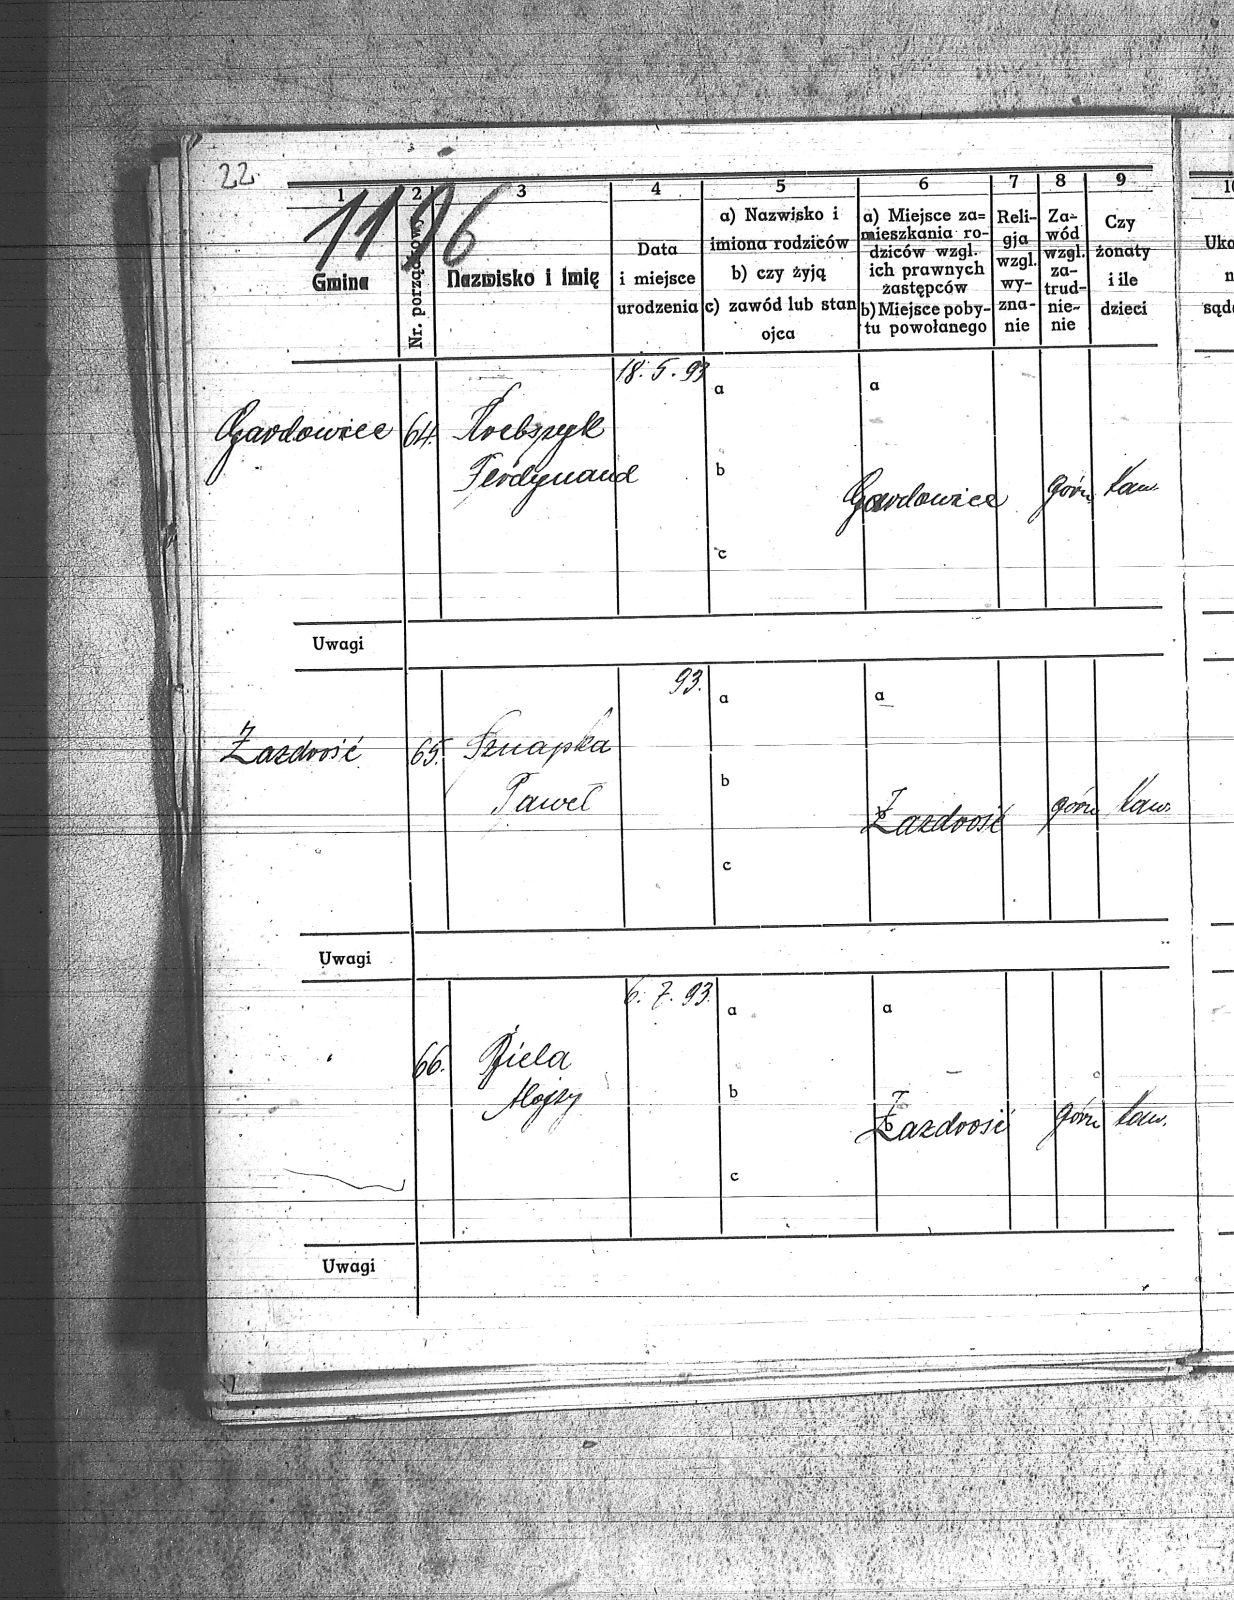 22.
1196
1 2 3 4 5 6 7 8 9
Gmina
Nr. porządkowy
Nazwisko i imię
Data
i miejsce
urodzenia
a) Nazwisko i
imiona rodziców
b) czy żyją
c) zawód lub stan
ojca
a) Miejsce za=
mieszkania ro-
dziców wzgl.
ich prawnych
zastępców
b) Miejsce poby-
tu powołanego
Reli-
gja
wzgl.
wy-
zna-
nie
Za-
wód
wzgl.
za-
trud-
nie-
nie
Czy
żonaty
i ile
dzieci
18. 5. 93
a a
Gardowice 64.
Ferdynand
b
Gardowice górn. kaw.
c
Uwagi
93.
a a
Zazdrość 65. Sznapka
Paweł
b b
Zazdrość górn kaw.
c
Uwagi
6. 7. 93.
a a
66. Biela
Alojzy
b b
Zazdrość górn kaw.
c
Uwagi